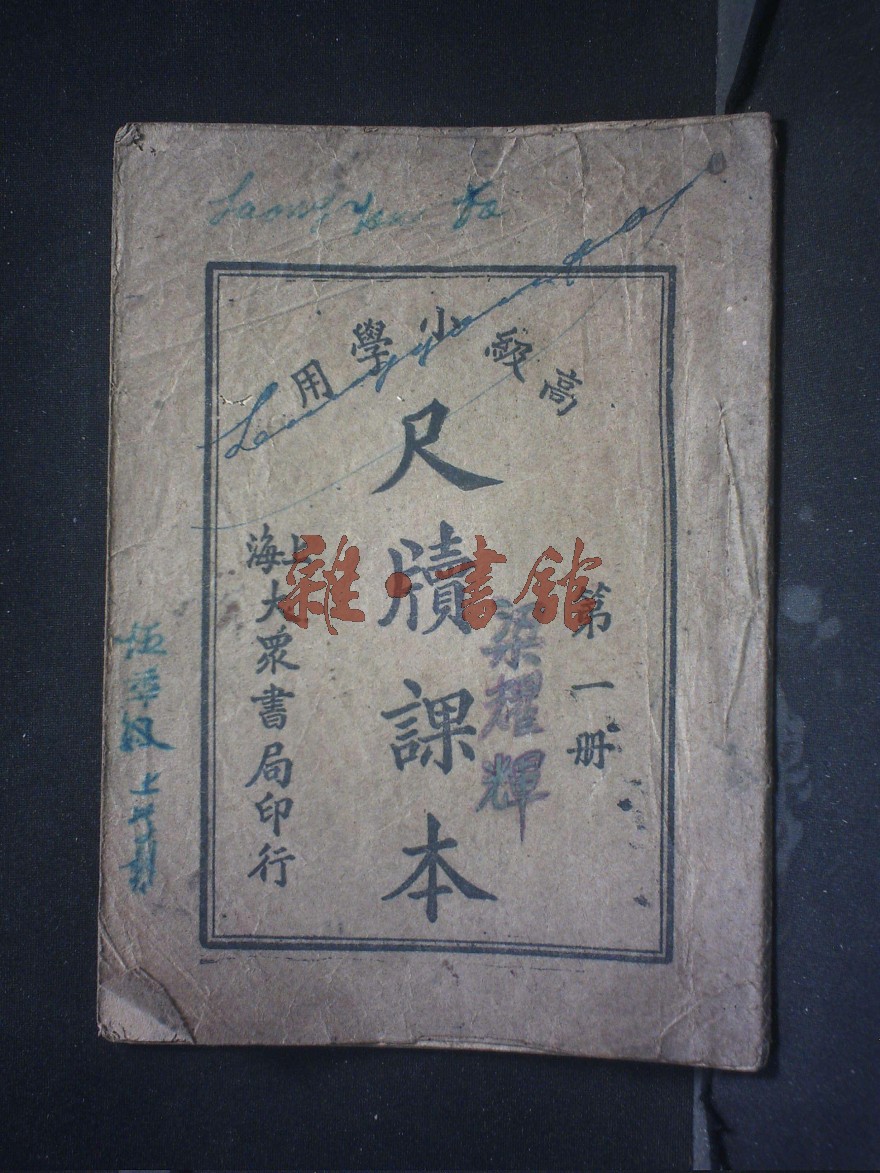 高級小學用
第一册
尺牘課本
上海大衆書局印行
梁耀輝
雜·書館
伍年級上學期